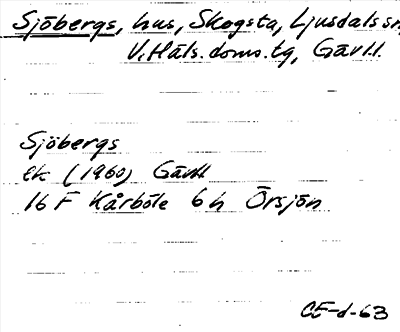 Sjöbergs, hus, Skogsta, Ljusdals sn,
V. Häls. doms. tg, Gävll.
Sjöbergs
ek (1960) Gävll
16 F Kårböle 6 h Örsjön
CE-d-63